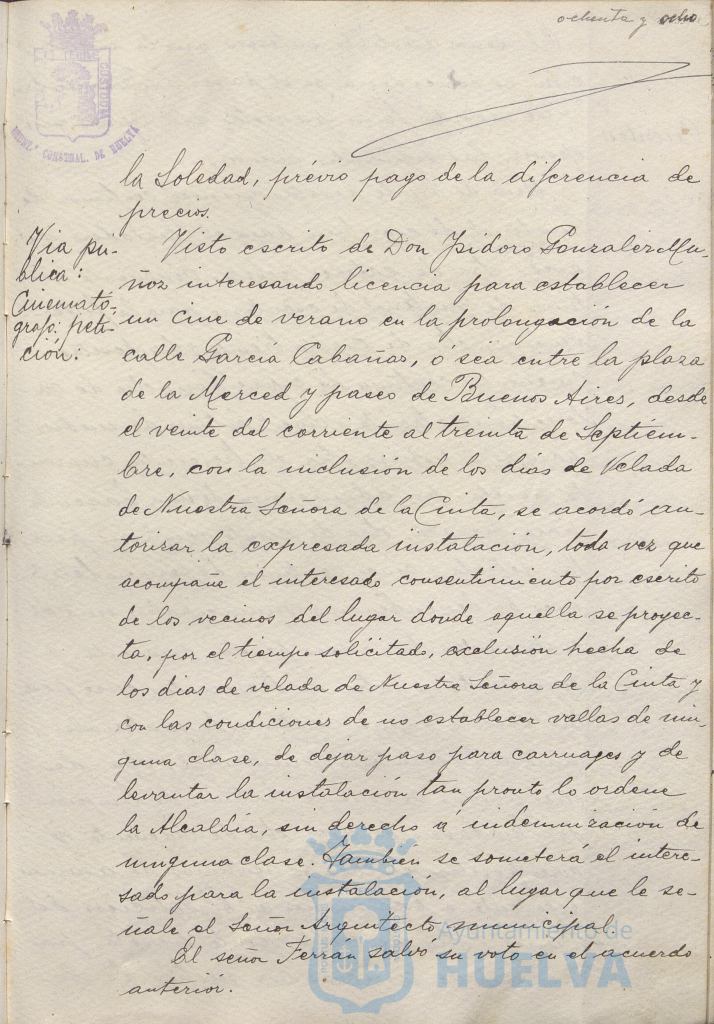 ochenta y ocho
CUSTODIA
CONSTNAL. DE HUELVA
la Soledad, prévio pago de la diferencia de
precios.
Via pú-
blica:
Cinemató-
grafo: peti-
ción:
Visto escrito de Don Ysidoro Gonzalez Mu-
ñoz interesando licencia para establecer
un cine de verano en la prolongación de la
calle García Cabañas, ó sea entre la plaza
de la Merced y paseo de Buenos Aires, desde
el veinte del corriente al treinta de Septiem-
bre, con la inclusión de los dias de Velada
de Nuestra Señora de la Cinta, se acordó au-
torizar la expresada instalación, toda vez que
acompañe el interesado consentimiento por escrito
de los vecinos del lugar donde aquella se proyec-
ta, por el tiempo solicitado, exclusión hecha de
los dias de velada de Nuestra Señora de la Cinta y
con las condiciones de no establecer vallas de nin-
guna clase, de dejar paso para carruages y de
levantar la instalación tan pronto lo ordene
la Alcaldía, sin derecho á indemnización de
ninguna clase. Tambien se someterá el intere-
sado para la instalación, al lugar que le se-
ñale el Señor Arquitecto municipal.
El señor Ferrán salvó su voto en el acuerdo
anterior.
Ayuntamiento de
HUELVA